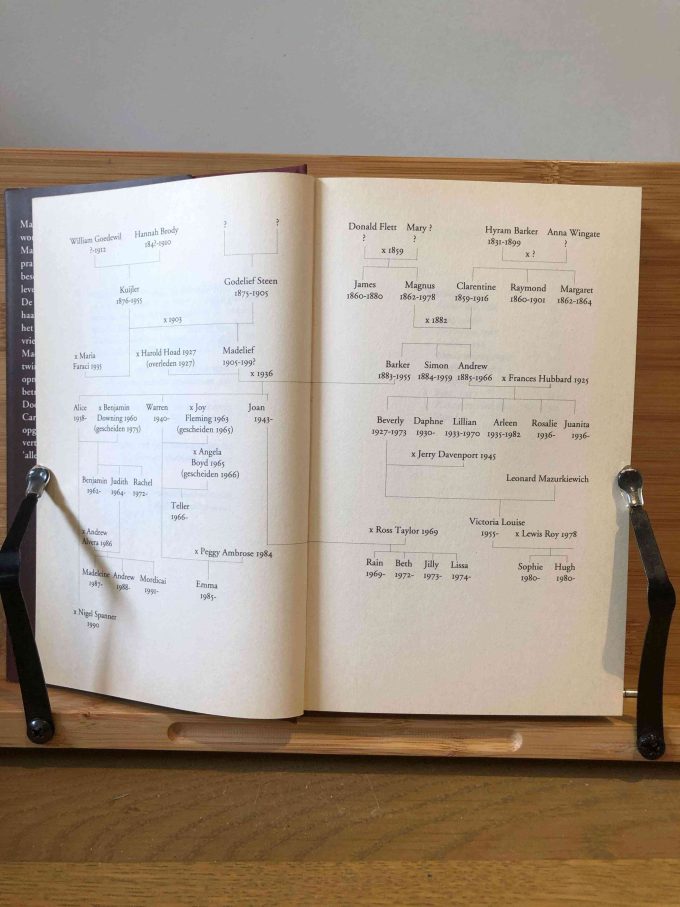 Ma
wo
Ma
pra
bes
leve
De
haa
het
vrie
Ma
twi
opn
bet
Doo
Car
opg
vert
'alle
William Goedewil
?-1912
Hannah Brody
184?-1910
?
?
Kuijler
1876-1955
Godelief Steen
1875-1905
x 1903
x Maria
Faraci 1935
x Harold Hoad 1927
(overleden 1927)
Madelief
1905-199?
x 1936
Alice
1938-
x Benjamin
Downing 1960
(gescheiden 1975)
Warren
1940-
x Joy
Fleming 1963
(gescheiden 1965)
Joan
1943-
x Angela
Boyd 1965
(gescheiden 1966)
Benjamin
1962-
Judith
1964-
Rachel
1972-
Teller
1966-
x Andrew
Alvera 1986
x Peggy Ambrose 1984
Madeleine
1987-
Andrew
1988-
Mordicai
1991-
Emma
1985-
x Nigel Spanner
1990
Donald Flett
?
Mary ?
?
x 1859
Hyram Barker
1831-1899
Anna Wingate
?
x ?
James
1860-1880
Magnus
1862-1978
Clarentine
1859-1916
Raymond
1860-1901
Margaret
1862-1864
x 1882
Barker
1883-1955
Simon
1884-1959
Andrew
1885-1966
x Frances Hubbard 1925
Beverly
1927-1973
Daphne
1930-
Lillian
1933-1970
Arleen
1935-1982
Rosalie
1936-
Juanita
1936-
x Jerry Davenport 1945
Leonard Mazurkiewich
Victoria Louise
1955-
x Ross Taylor 1969
x Lewis Roy 1978
Rain
1969-
Beth
1972-
Jilly
1973-
Lissa
1974-
Sophie
1980-
Hugh
1980-